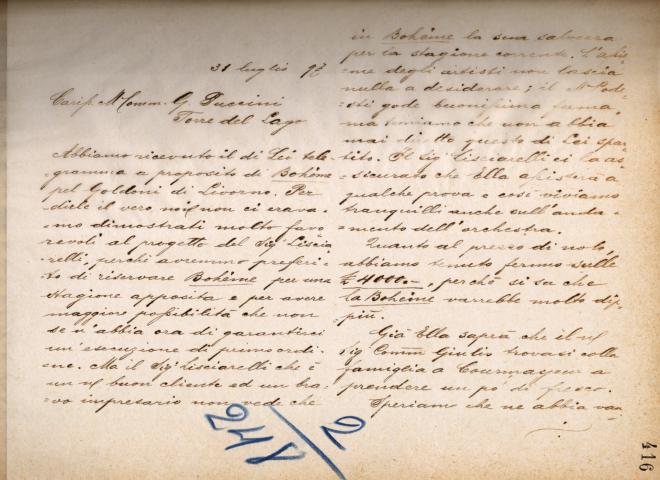 31 luglio 97
Carissº Mº Comm. G. Puccini
Torre del Lago
Abbiamo ricevuto il di Lei tele-
gramma a proposito di Bohème
pel Goldoni di Livorno. Per
dirle il vero noi non ci erava-
mo dimostrati molto favo
revoli al progetto del Sig Liscia
relli, perchè avremmo preferi-
to di riservare Bohème per una
stagione apposita e per avere
maggiore possibilità che non
se n'abbia ora di garantirci
un'esecuzione di primo ordi-
ne. Ma il Sig Lisciarelli che è
un ns/ buon cliente ed un bra-
vo impresario non vede che
in Bohème la sua salvezza
per la stagione corrente. L'assie-
me degli artisti non lascia
nulla a desiderare; il Mº
gode buonissima fama
ma temiamo che non abbia
mai diretto questo di Lei spar-
tito. Il Sig Lisciarelli ci ha as-
sicurato che Ella assisterà a
qualche prova e così viviamo
tranquilli anche sull'anda-
mento dell'orchestra.
Quanto al prezzo di nolo,
abbiamo tenuto fermo sulle
£ 4000.-, perchè si sa che
la Bohème varrebbe molto di
più.
Già Ella saprà che il ns/
Sig Comm Giulio trovasi colla
famiglia a Courmayeur a
prendere un po' di fresco.
Speriam che ne abbia van-
248/2
416